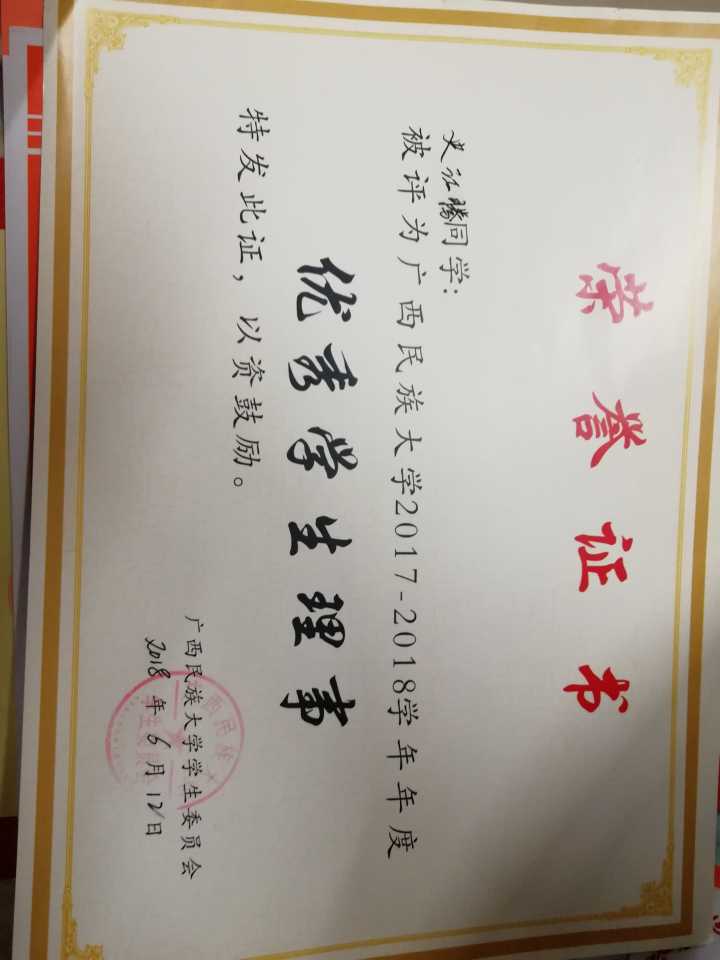 荣誉证书
史证腾同学:
被评为广西民族大学2017-2018学年年度
优秀学生理事
特发此证,以资鼓励。
广西民族大学学生委员会
2018年6月12日